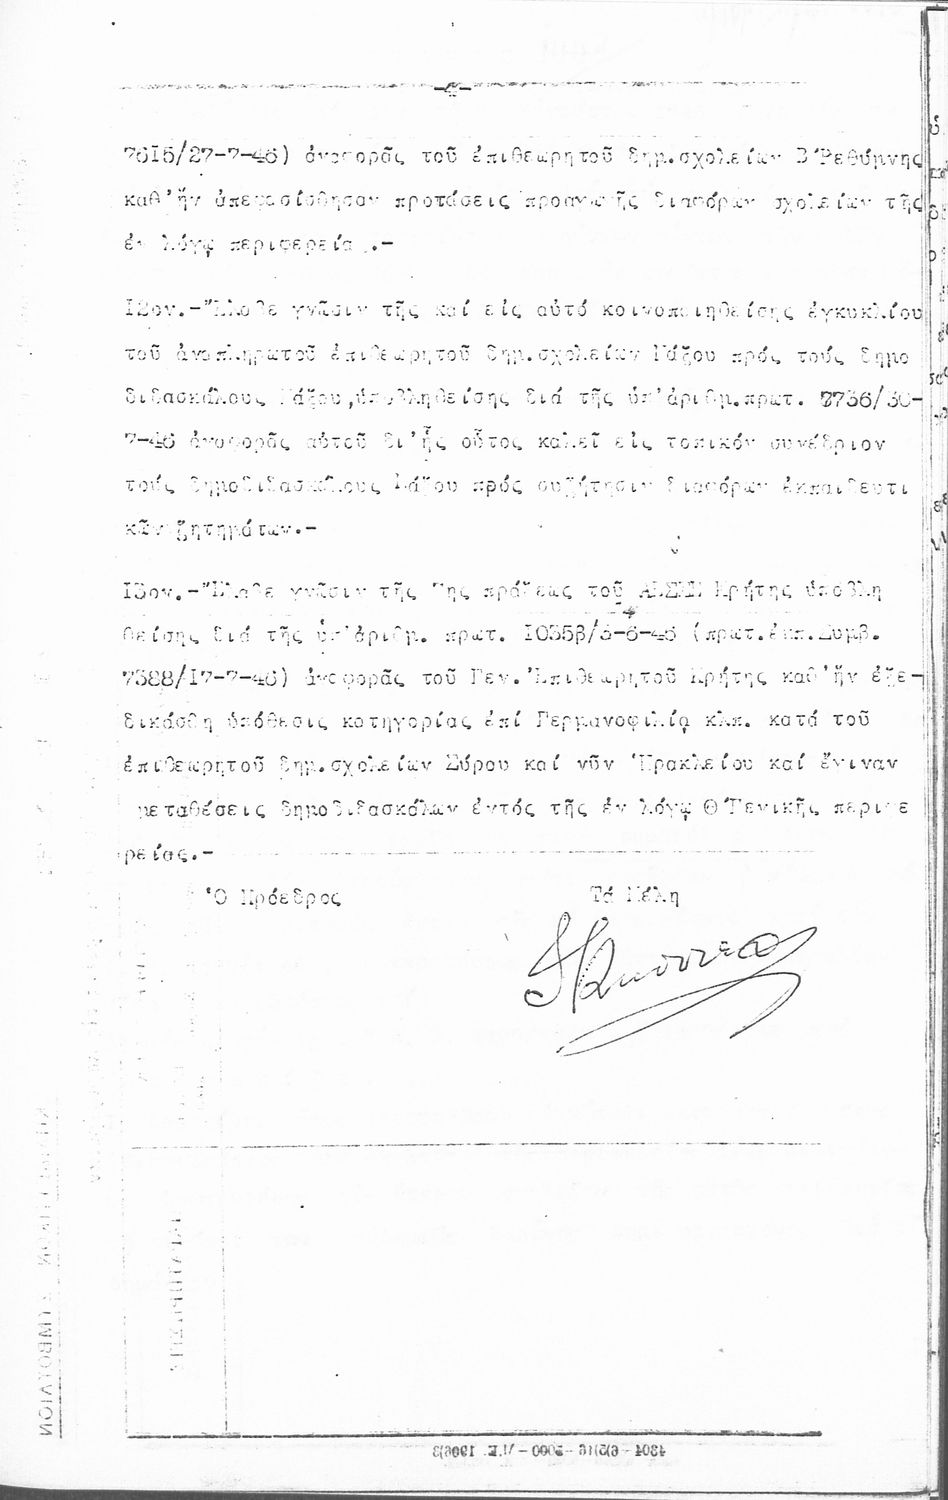 7615/27-7-46) ἀναφορᾶς τοῦ ἐπιθεωρητοῦ δημ.σχολείων Β Ῥεθύμνης
καθ'ἥν ἀπεφασίσθησαν προτάσεις προαγωγῆς διαφόρων σχολείων τῆς
ἐν λόγῳ περιφερεία .-
Ι2ον.-Ἔλαβε γνῶσιν τῆς καί εἰς αὐτό κοινοποιηθείσης ἐγκυκλίου
τοῦ ἀναπληρωτοῦ ἐπιθεωρητοῦ δημ.σχολείων Νάξου πρός τούς δημο
διδασκάλους Νάξου,ὑποβληθείσης διά τῆς ὑπ'ἀριθμ.πρωτ. 7736/30-
7-46 ἀναφορᾶς αὐτοῦ δι'ἧς οὗτος καλεῖ εἰς τοπικόν συνέδριον
τούς δημοδιδασκάλους Νάξου πρός συζήτησιν διαφόρων ἐκπαιδευτι
κῶν ζητημάτων.-
Ι3ον.-Ἔλαβε γνῶσιν τῆς 7ης πράξεως τοῦ ΑΕΣΣΕ Κρήτης ὑποβλη
θείσης διά τῆς ὑπ'ἀριθμ. πρωτ. Ι035β/3-6-46 (πρωτ.ἐκπ.Συμβ.
7388/Ι7-7-46) ἀναφορᾶς τοῦ Γεν.Ἐπιθεωρητοῦ Κρήτης καθ'ἥν ἐξε-
δικάσθη ὑπόθεσις κατηγορίας ἐπί Γερμανοφιλίᾳ κλπ. κατά τοῦ
ἐπιθεωρητοῦ δημ.σχολείων Σύρου καί νῦν Ἡρακλείου καί ἔγιναν
μεταθέσεις δημοδιδασκάλων ἐντός τῆς ἐν λόγῳ Θ Γενικῆς περιφε
ρείας.-
Ὁ Πρόεδρος Τά Μέλη